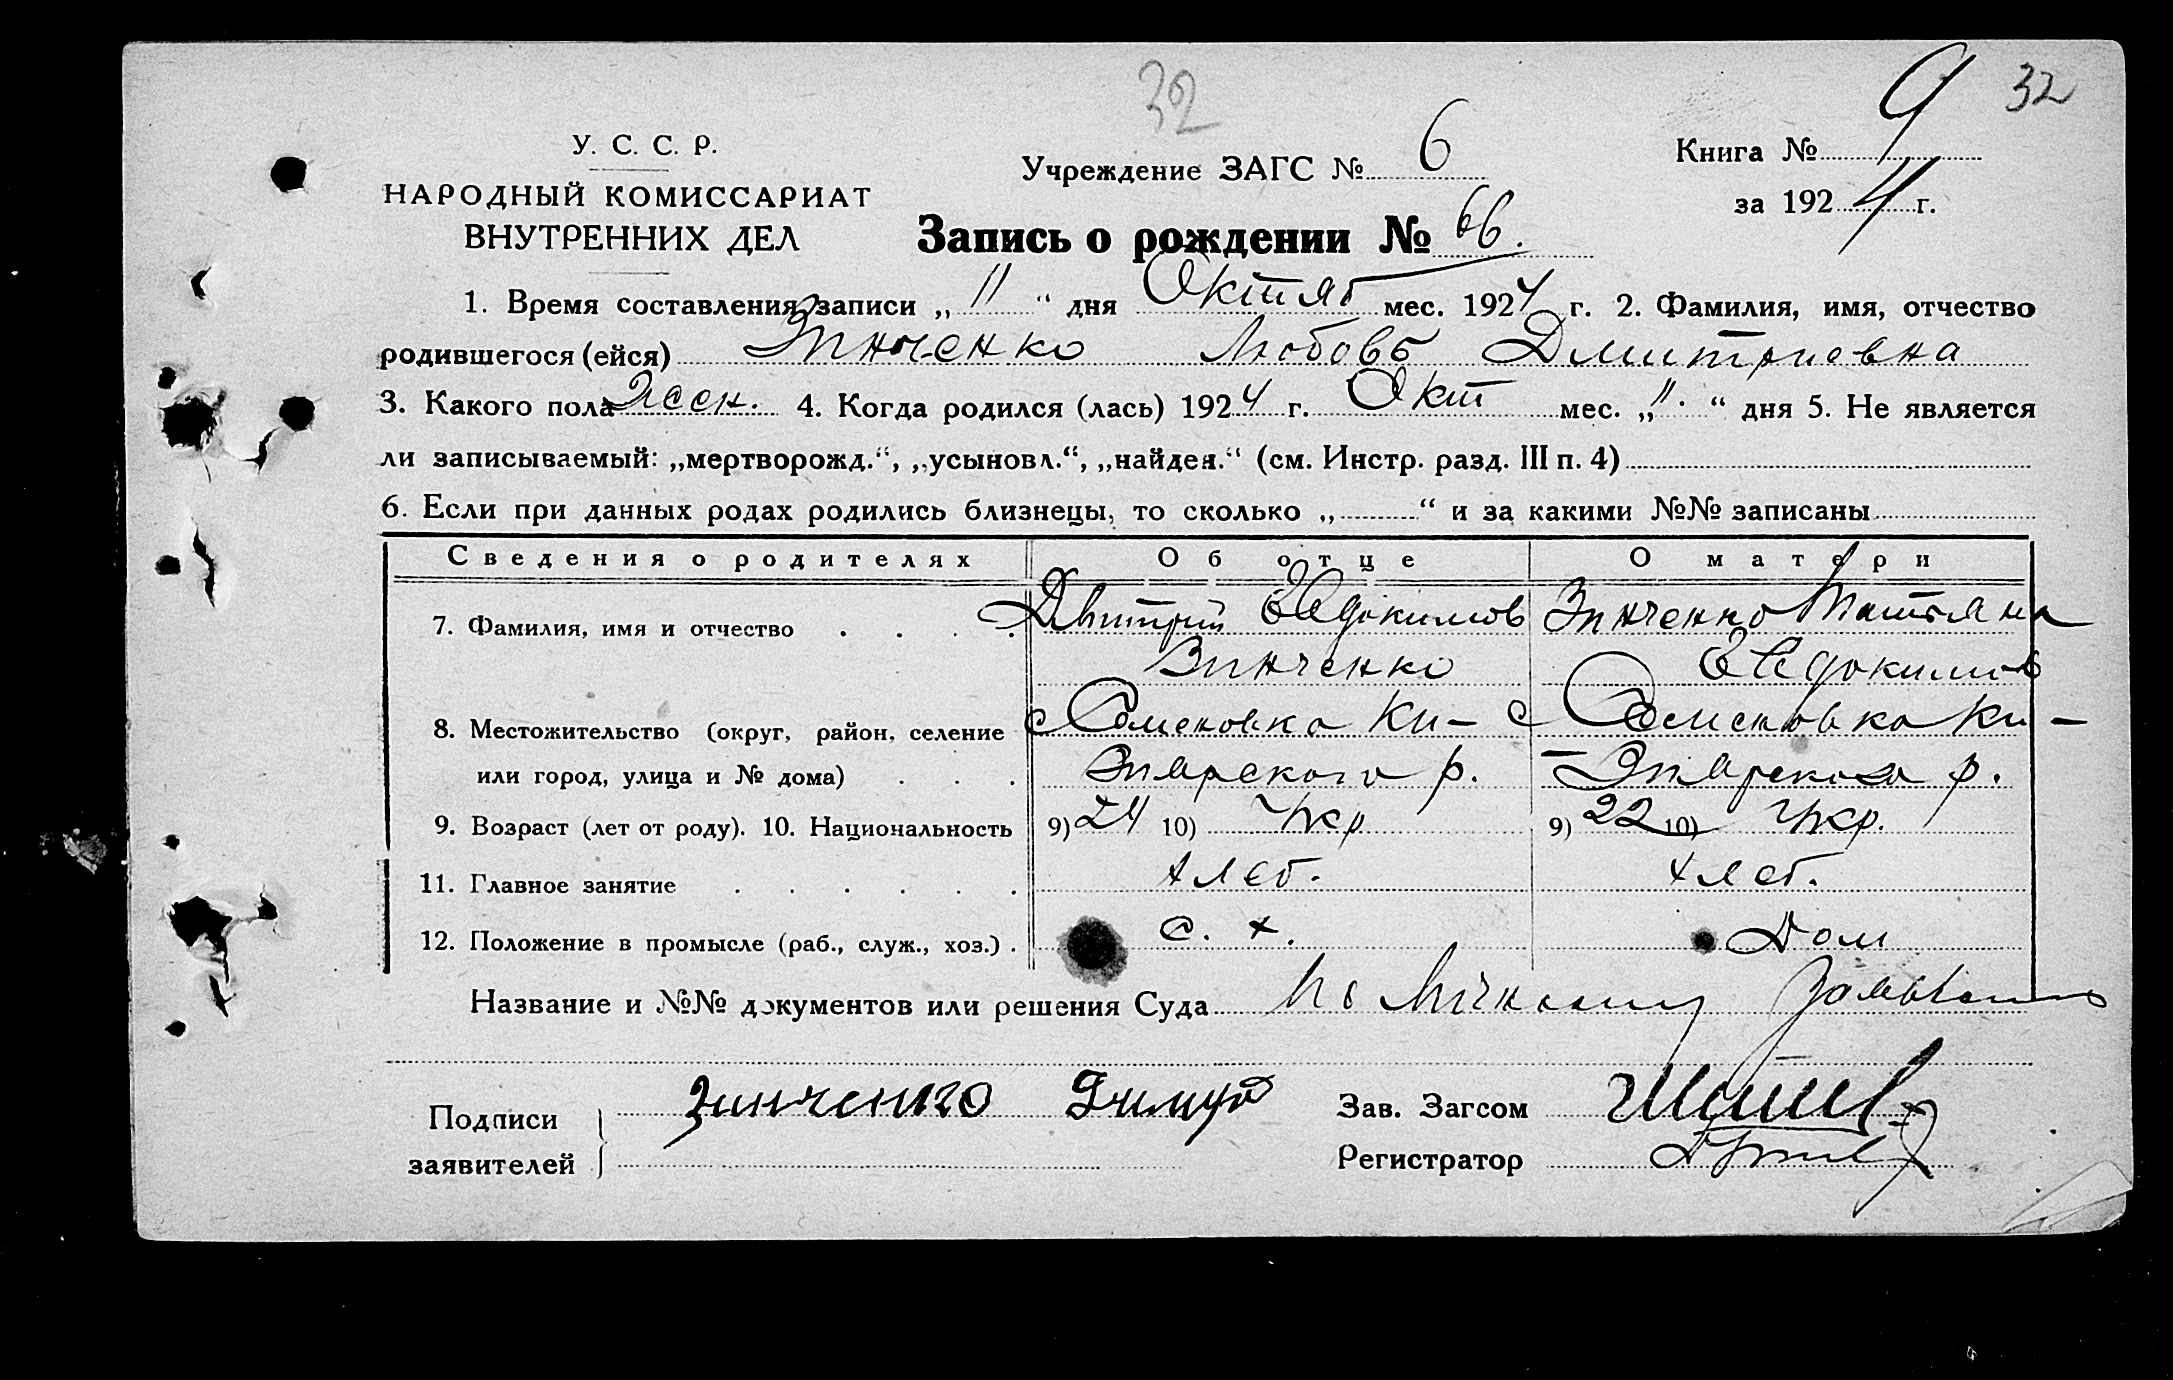 32
9 32
У. С. С. Р.
НАРОДНЫЙ КОМИССАРИАТ
ВНУТРЕННИХ ДЕЛ
Учреждение ЗАГС № 6
Книга № 9
за 1924 г.
Запись о рождении № 66.
1. Время составления записи „ 11 “ дня Октяб мес. 1924 г. 2. Фамилия, имя, отчество
родившегося (ейся) Зинченко Любовь Дмитриевна
3. Какого пола Жен. 4. Когда родился (лась) 1924 г. Окт мес. „ 11 “ дня 5. Не является
ли записываемый: „мертворожд.“, „усыновл.“, „найден.“ (см. Инстр. разд. III п. 4)
6. Если при данных родах родились близнецы, то сколько „ “ и за какими №№ записаны
Сведения о родителях Об отце О матери
7. Фамилия, имя и отчество Дмитрий Евдокимов Зинченко Татьяна
Зинченко Евдокимов
8. Местожительство (округ, район, селение с Семеновка Ки- с Семеновка Ки-
или город, улица и № дома) р. р.
9. Возраст (лет от роду). 10. Национальность 9) 24 10) Укр 9) 22 10) Укр.
11. Главное занятие хлеб. хлеб.
12. Положение в промысле (раб., служ., хоз.) с. х. Дом
Название и №№ документов или решения Суда По личному
Подписи
заявителей
Зинченко
Зав. Загсом
Регистратор